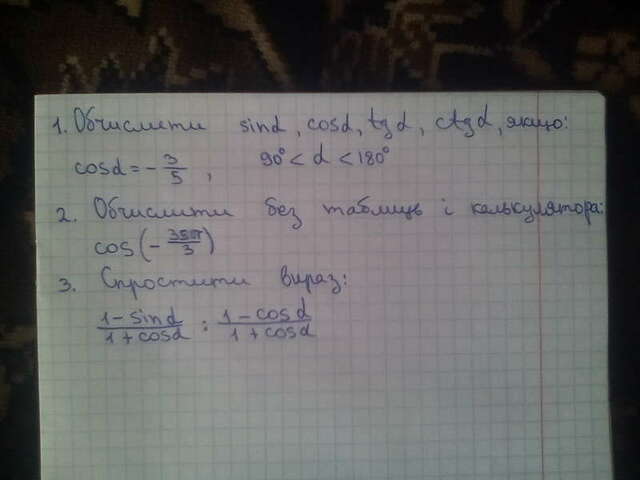 1. Обчислити sinα, cosα, tgα, ctgα, якщо:
cosα = -3/5, 90° < α < 180°
2. Обчислити без таблиць і калькулятора:
cos(-35π/3)
3. Спростити вираз:
1-sinα/1+cosα : 1-cosα/1+cosα